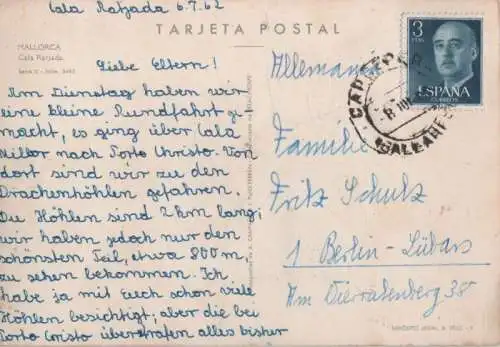 Cala Ratjada 6.7.62
TARJETA POSTAL
MALLORCA
Cala Ratjada
Liebe Eltern!
Am Dienstag haben wir
eine kleine Rundfahrt ge-
macht, es ging über Cala
Millor nach Porto Christo. Von
dort sind wir zu den
Drachenhöhlen gefahren.
Die Höhlen sind 2 km lang,
wir haben jedoch nur den
schönsten Teil, etwa 800 m
zu sehen bekommen. Ich
habe ja mit Euch schon viele
Höhlen besichtigt, aber die bei
Porto Cristo übertrafen alles bisher
3
PTAS
ESPAÑA
CORREOS
Allemane
Familie
Fritz Schulz
1 Berlin-Lübars
Am Vierrutenberg 38